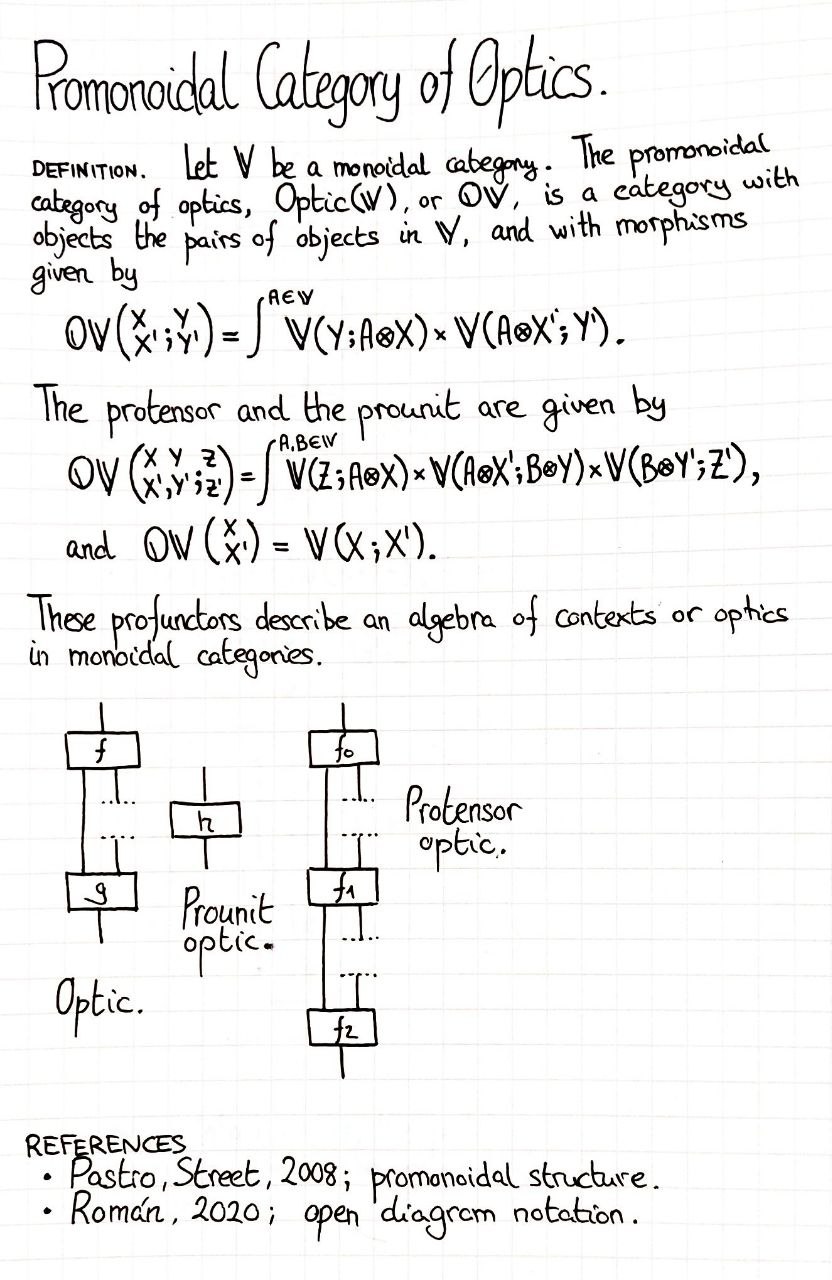 Promonoidal Category of Optics.
DEFINITION. Let 𝕍 be a monoidal category. The promonoidal
category of optics, Optic(𝕍), or 𝕆𝕍, is a category with
objects the pairs of objects in 𝕍, and with morphisms
given by
𝕆𝕍(X X' ; Y Y') = ∫^{A∈𝕍} 𝕍(Y;A⊗X) × 𝕍(A⊗X';Y').
The protensor and the prounit are given by
𝕆𝕍(X X', Y Y' ; Z Z') = ∫^{A,B∈𝕍} 𝕍(Z;A⊗X) × 𝕍(A⊗X';B⊗Y) × 𝕍(B⊗Y';Z'),
and 𝕆𝕍(X X') = 𝕍(X;X').
These profunctors describe an algebra of contexts or optics
in monoidal categories.
f
g
Optic.
h
Prounit
optic.
f0
f1
f2
Protensor
optic.
REFERENCES
• Pastro, Street, 2008; promonoidal structure.
• Román, 2020; open diagram notation.